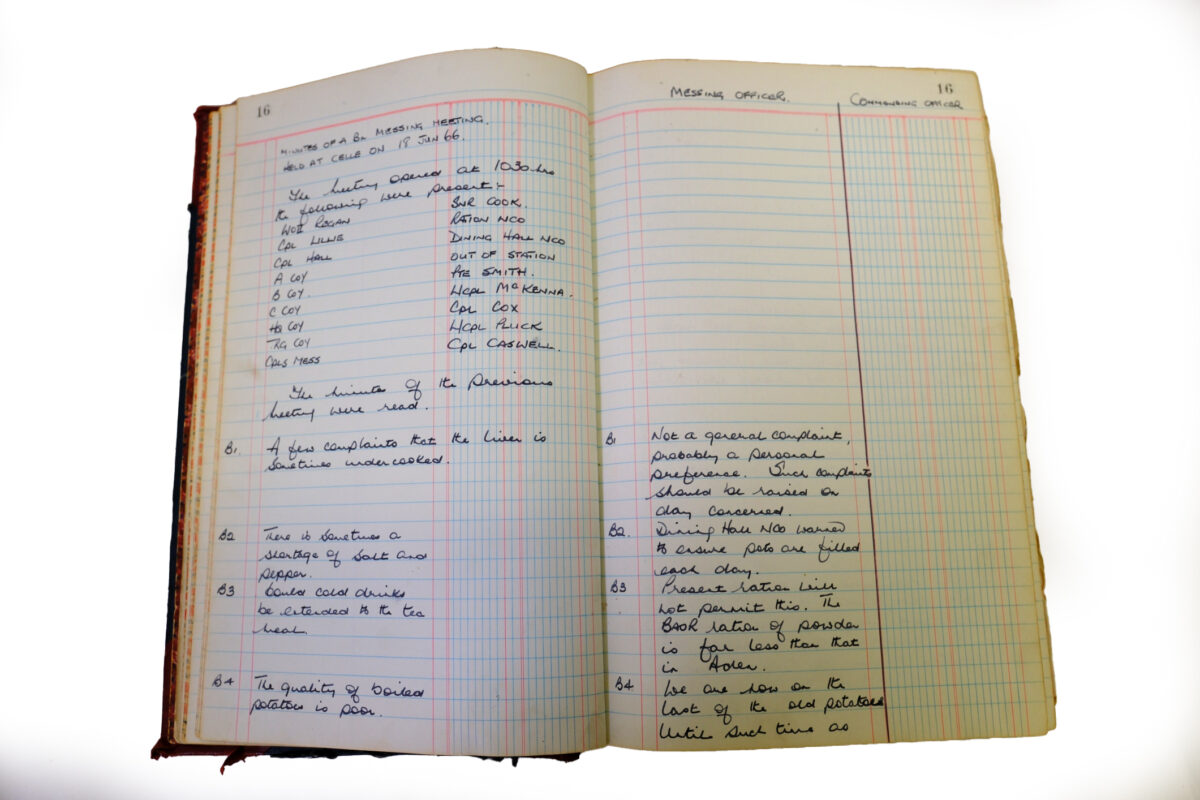 16
MINUTES OF A BN MESSING MEETING.
HELD AT CELLE ON 18 JUN 66.
The meeting opened at 1030 hrs
the following were present:-
WOII REGAN SNR COOK
CPL LILLIE RATION NCO
CPL HALL DINING HALL NCO
A COY OUT OF STATION
B COY. PTE SMITH.
C COY L/CPL McKENNA.
HQ COY CPL COX
TRG COY L/CPL PLUCK
CPLS MESS CPL CASWELL.
The minutes of the previous
meeting were read.
B1. A few complaints that the liver is
sometimes undercooked.
B2 There is sometimes a
shortage of salt and
pepper.
B3 Could cold drinks
be extended to the tea
meal.
B4 The quality of boiled
potatoes is poor.
16
MESSING OFFICER. COMMANDING OFFICER
B1 Not a general complaint,
probably a personal
preference. Such complaints
should be raised on
day concerned.
B2. Dining Hall NCO warned
to ensure pots are filled
each day.
B3 Present ration will
not permit this. The
BAOR ration of powder
is far less than that
in Aden.
B4 We are now on the
last of the old potatoes
Until such time as